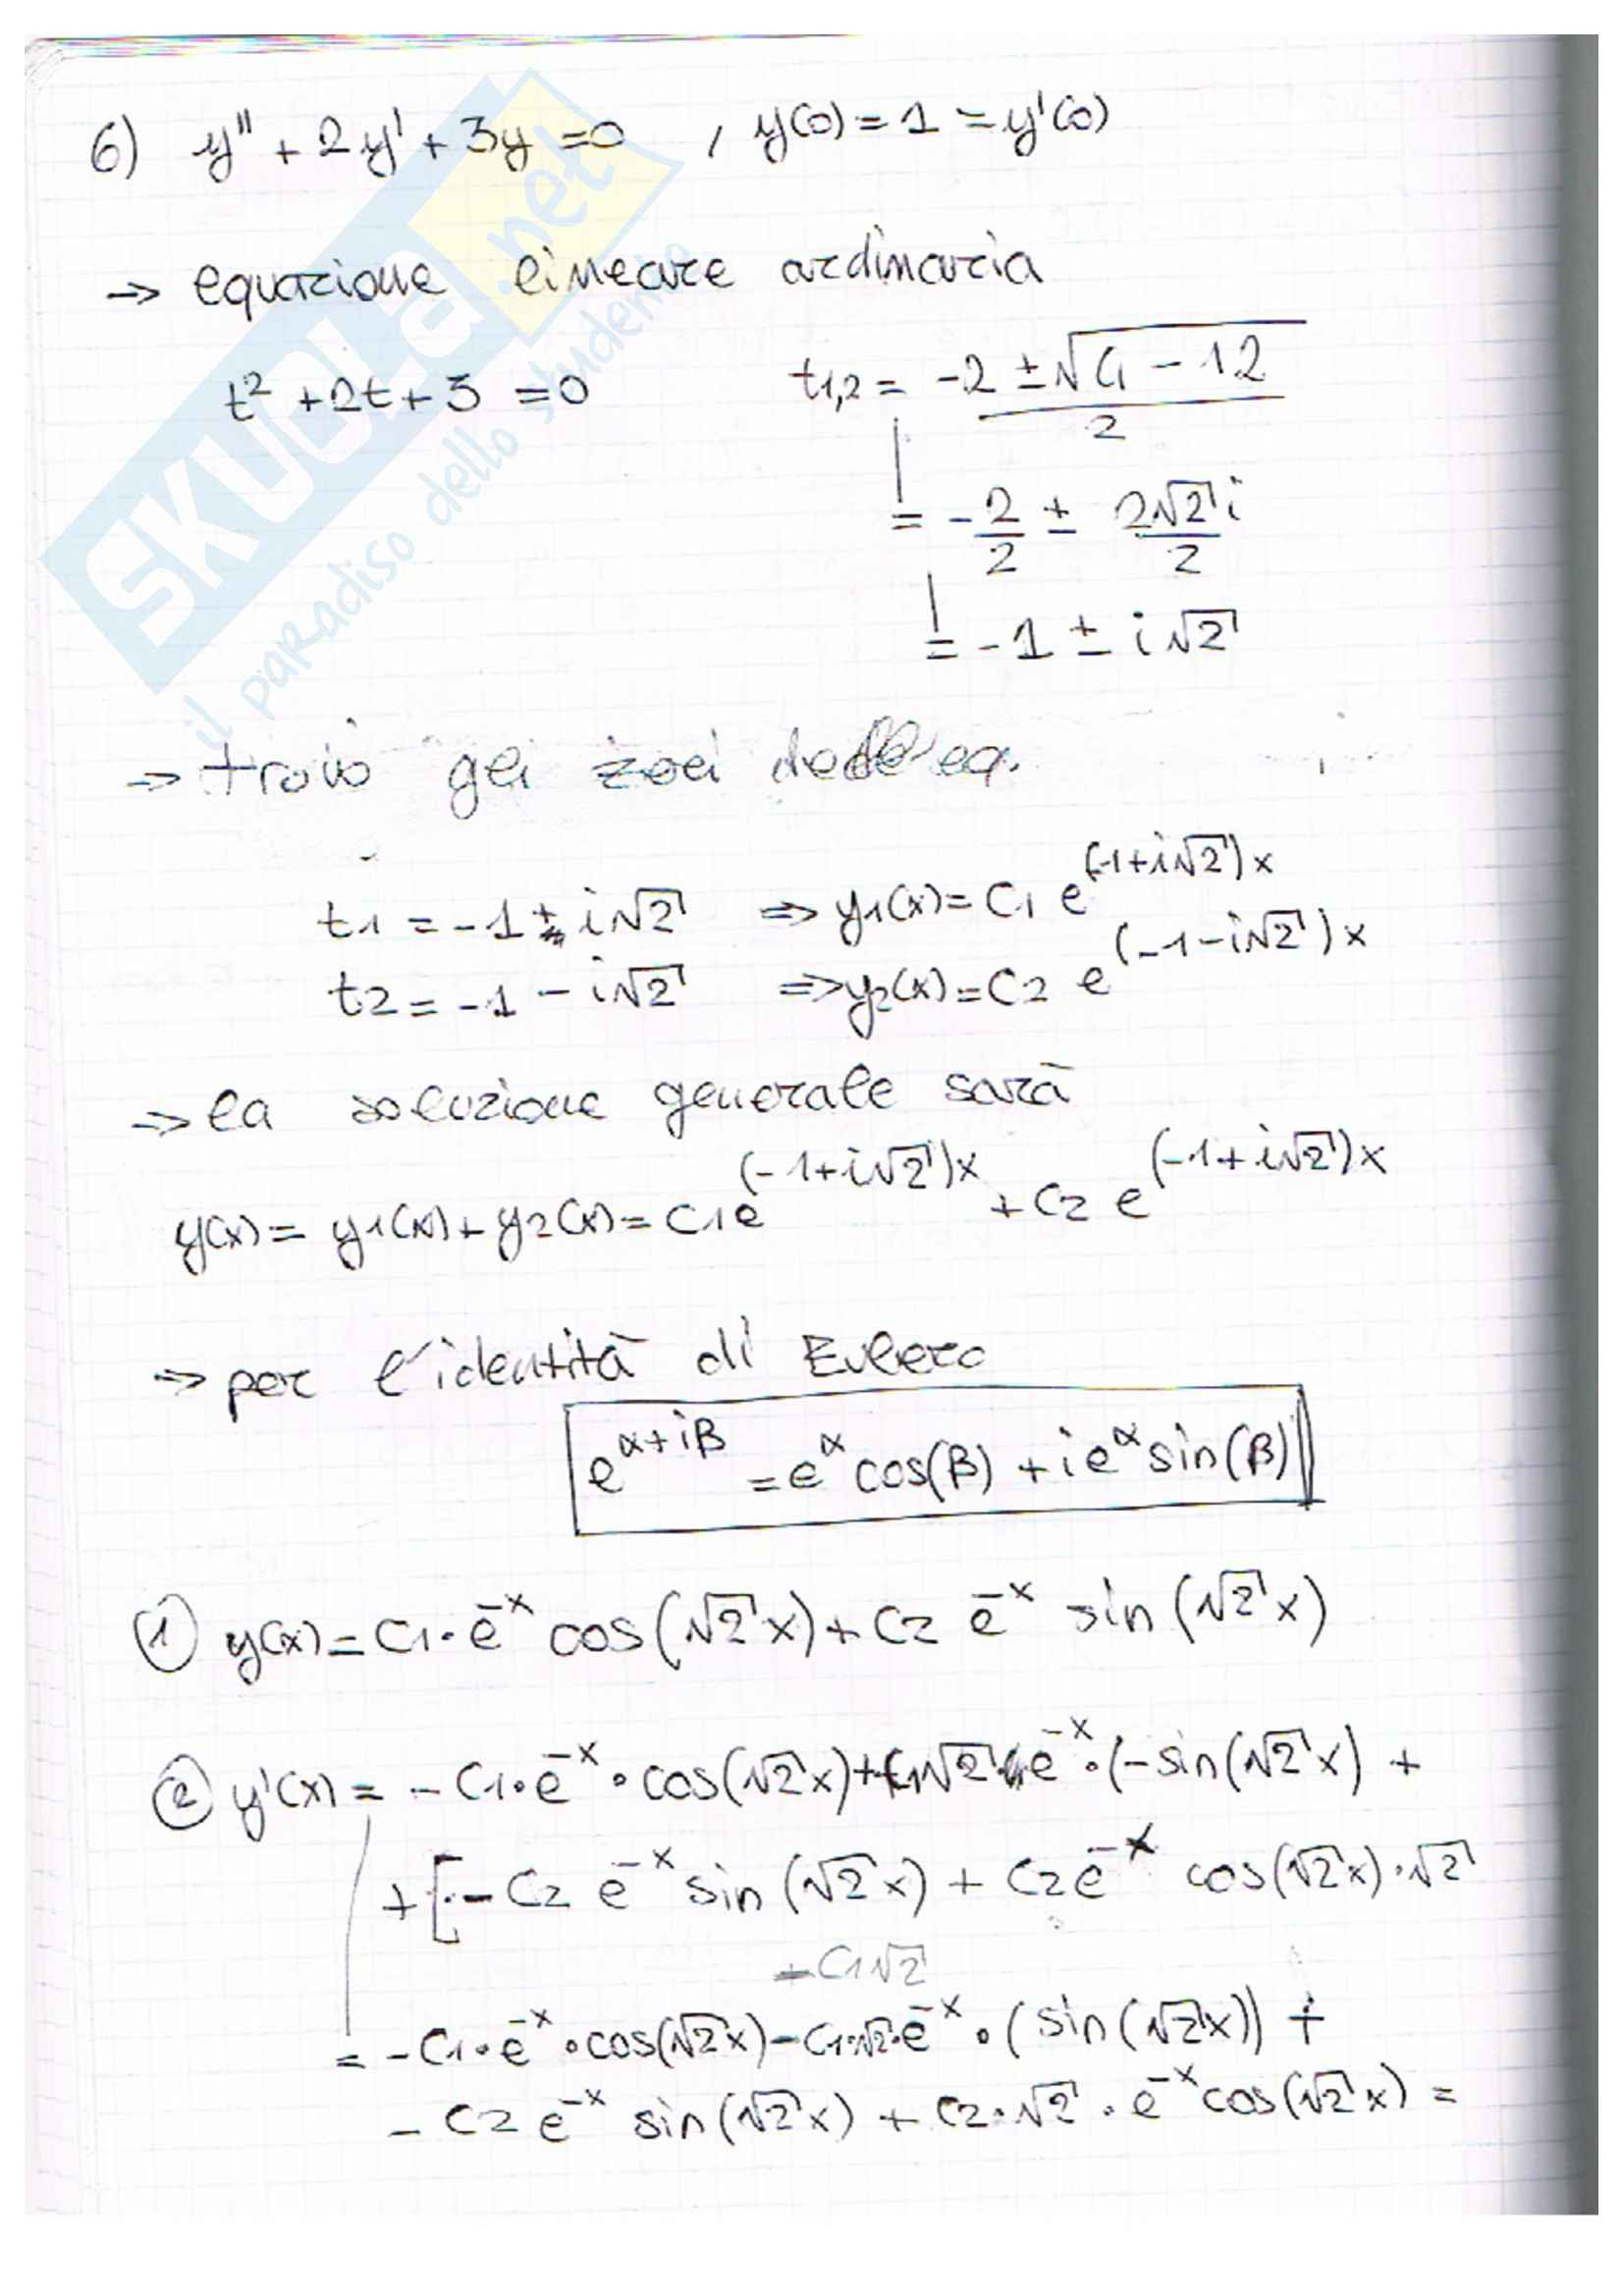 6) y'' + 2y' + 3y = 0 , y(0) = 1 = y'(0)
→ equazione lineare ordinaria
t² + 2t + 3 = 0 t1,2 = -2 ± √4 - 12 / 2
= -2/2 ± 2√2 i / 2
= -1 ± i√2
⇒ trovo gli zeri dell'eq.
t1 = -1 + i√2 ⇒ y1(x) = C1 e^(-1+i√2)x
t2 = -1 - i√2 ⇒ y2(x) = C2 e^(-1-i√2)x
⇒ la soluzione generale sarà
y(x) = y1(x) + y2(x) = C1 e^(-1+i√2)x + C2 e^(-1+i√2)x
⇒ per l'identità di Eulero
e^α+iβ = e^α cos(β) + i e^α sin(β)
① y(x) = C1 · e^-x cos(√2 x) + C2 e^-x sin(√2 x)
② y'(x) = - C1 · e^-x · cos(√2 x) + C1√2 · e^-x · (-sin(√2 x) +
+ [ - C2 e^-x sin(√2 x) + C2 e^-x cos(√2 x) · √2
C1√2
= - C1 · e^-x · cos(√2 x) - C1·√2·e^-x · (sin(√2 x)) +
- C2 e^-x sin(√2 x) + C2·√2 · e^-x cos(√2 x) =
SKUOLA.net
il paradiso dello studente